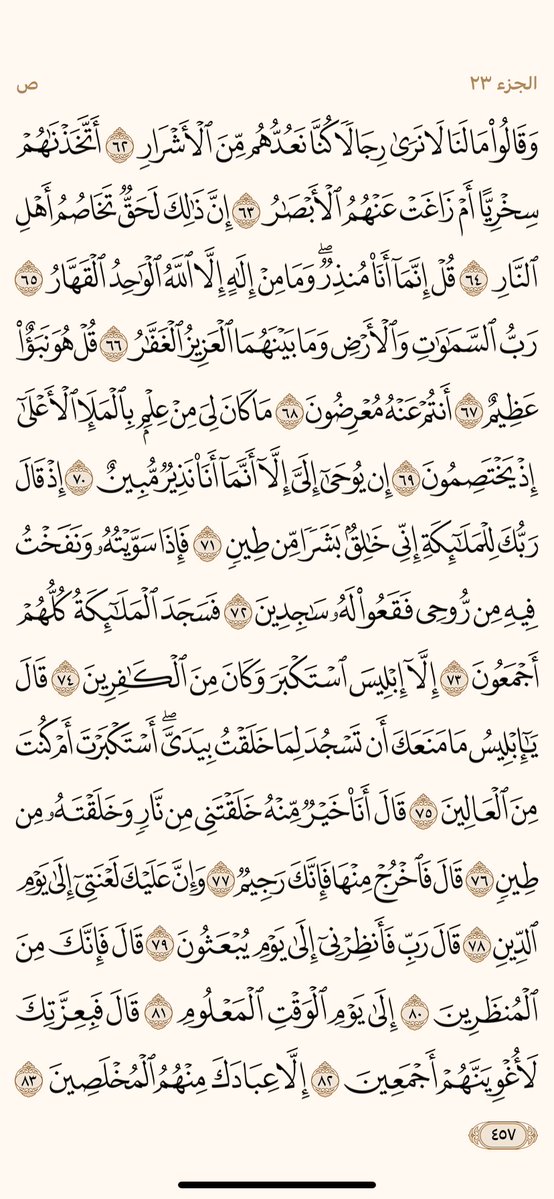 الجزء ٢٣
ص
وَقَالُوا۟ مَا لَنَا لَا نَرَىٰ رِجَالًا كُنَّا نَعُدُّهُم مِّنَ ٱلْأَشْرَارِ ٦٢ أَتَّخَذْنَٰهُمْ
سِخْرِيًّا أَمْ زَاغَتْ عَنْهُمُ ٱلْأَبْصَٰرُ ٦٣ إِنَّ ذَٰلِكَ لَحَقٌّ تَخَاصُمُ أَهْلِ
ٱلنَّارِ ٦٤ قُلْ إِنَّمَآ أَنَا۠ مُنذِرٌ ۖ وَمَا مِنْ إِلَٰهٍ إِلَّا ٱللَّهُ ٱلْوَٰحِدُ ٱلْقَهَّارُ ٦٥
رَبُّ ٱلسَّمَٰوَٰتِ وَٱلْأَرْضِ وَمَا بَيْنَهُمَا ٱلْعَزِيزُ ٱلْغَفَّٰرُ ٦٦ قُلْ هُوَ نَبَؤٌا۟
عَظِيمٌ ٦٧ أَنتُمْ عَنْهُ مُعْرِضُونَ ٦٨ مَا كَانَ لِىَ مِنْ عِلْمٍۭ بِٱلْمَلَإِ ٱلْأَعْلَىٰٓ
إِذْ يَخْتَصِمُونَ ٦٩ إِن يُوحَىٰٓ إِلَىَّ إِلَّآ أَنَّمَآ أَنَا۠ نَذِيرٌ مُّبِينٌ ٧٠ إِذْ قَالَ
رَبُّكَ لِلْمَلَٰٓئِكَةِ إِنِّى خَٰلِقٌۢ بَشَرًا مِّن طِينٍ ٧١ فَإِذَا سَوَّيْتُهُۥ وَنَفَخْتُ
فِيهِ مِن رُّوحِى فَقَعُوا۟ لَهُۥ سَٰجِدِينَ ٧٢ فَسَجَدَ ٱلْمَلَٰٓئِكَةُ كُلُّهُمْ
أَجْمَعُونَ ٧٣ إِلَّآ إِبْلِيسَ ٱسْتَكْبَرَ وَكَانَ مِنَ ٱلْكَٰفِرِينَ ٧٤ قَالَ
يَٰٓإِبْلِيسُ مَا مَنَعَكَ أَن تَسْجُدَ لِمَا خَلَقْتُ بِيَدَىَّ ۖ أَسْتَكْبَرْتَ أَمْ كُنتَ
مِنَ ٱلْعَالِينَ ٧٥ قَالَ أَنَا۠ خَيْرٌ مِّنْهُ خَلَقْتَنِى مِن نَّارٍ وَخَلَقْتَهُۥ مِن
طِينٍ ٧٦ قَالَ فَٱخْرُجْ مِنْهَا فَإِنَّكَ رَجِيمٌ ٧٧ وَإِنَّ عَلَيْكَ لَعْنَتِىٓ إِلَىٰ يَوْمِ
ٱلدِّينِ ٧٨ قَالَ رَبِّ فَأَنظِرْنِىٓ إِلَىٰ يَوْمِ يُبْعَثُونَ ٧٩ قَالَ فَإِنَّكَ مِنَ
ٱلْمُنظَرِينَ ٨٠ إِلَىٰ يَوْمِ ٱلْوَقْتِ ٱلْمَعْلُومِ ٨١ قَالَ فَبِعِزَّتِكَ
لَأُغْوِيَنَّهُمْ أَجْمَعِينَ ٨٢ إِلَّا عِبَادَكَ مِنْهُمُ ٱلْمُخْلَصِينَ ٨٣
٤٥٧